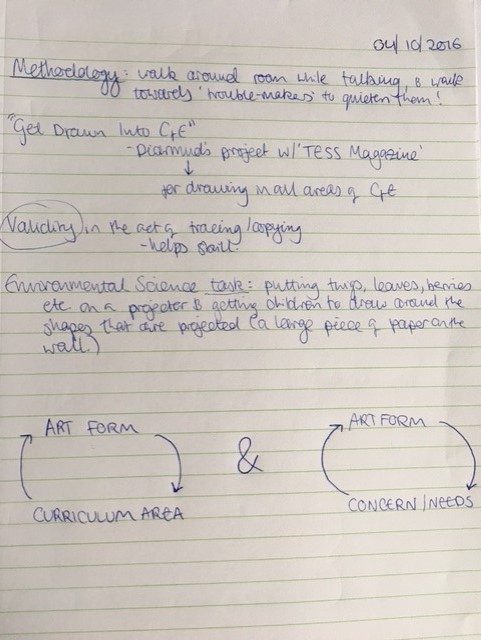 04/10/2016
Methodology: walk around room while talking, & walk
towards 'trouble-makers' to quieten them!
"Get Drawn Into CfE"
- Diarmuid's project w/ 'TESS Magazine'
↓
for drawing in all areas of CfE
Validity in the act of tracing/copying
- helps skill.
Environmental Science task: putting twigs, leaves, berries
etc. on a projector & getting children to draw around the
shapes that are projected (a large piece of paper on the
wall)
ART FORM
CURRICULUM AREA
&
ART FORM
CONCERN/NEEDS